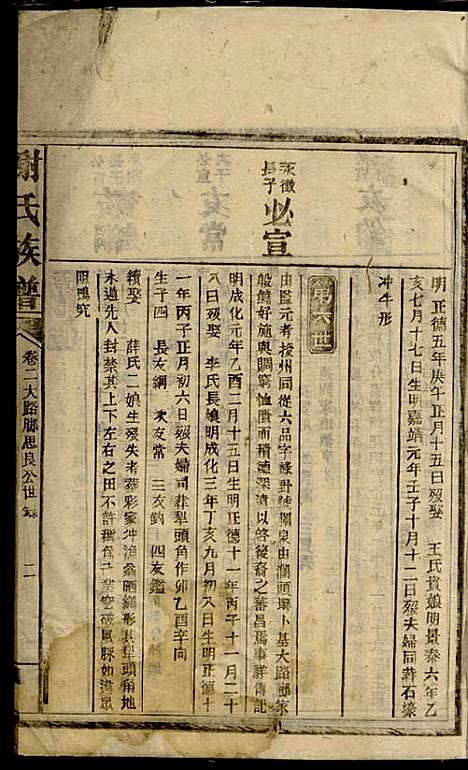 明正德五年庚午正月十五日歿娶 王氏貴娘明景泰六年乙
亥七月十七日生明嘉靖元年壬子十月十二日歿夫婦同葬石壕
冲牛形
第六世
永徵
長子
必宣
由監元考授州同從六品字祿對號 泉由瀾頭壩卜基大路腳家
般饒好施與賙窮恤匱而積德深遠以啓後裔之蕃昌焉事詳傳記
明成化元年乙酉二月十五日生明正德十一年丙子十一月二十
八日歿娶 李氏長娘明成化三年丁亥九月初八日生明正德十
一年丙子正月初六日歿夫婦同葬犁頭角作卯乙酉辛向
生子四 長友綱 次友常 三友釣 四友鑑
續娶 薛氏二娘生歿失考葬彩家冲漁翁晒網形其犁頭角地
永遠先人封禁其上下左右之田不許 爲 業空破風脉如違眾
眼鴨究
謝氏族譜
卷二大路腳思良公世錄
二